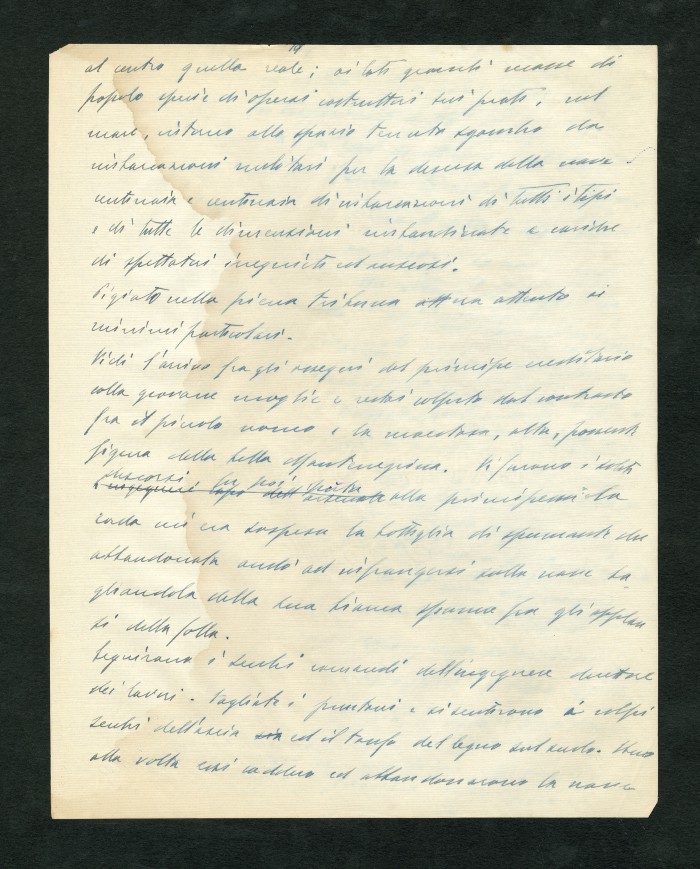 al centro quella reale; ai lati grandi masse di
popolo specie di operai costruttori sui prati, nel
mare, intorno allo spazio tenuto sgombro da
imbarcazioni militari per la discesa della nave
centinaia e centinaia di imbarcazioni di tutti i tipi
e di tutte le dimensioni imbandierate e cariche
di spettatori irrequieti ed ansiosi.
Pigiato nella piena tribuna attento ai
minimi particolari.
Vidi l'arrivo fra gli ossequi del principe ereditario
colla giovane moglie e restai colpito dal contrasto
fra il piccolo uomo e la maestosa, alta, possente
figura della bella Montenegrina. Vi furono i soliti
discorsi fu poi porta
ingegnere capo dell'arsenale alla principessa la
mi era sospesa la bottiglia di spumante che
abbandonata andò ad infrangersi sulla nave ba
gnandola della sua bianca spuma fra gli applau
si della folla.
Seguirono i secchi comandi dell'ingegnere direttore
dei lavori. Tagliate i puntari e si sentirono i colpi
secchi dell'ascia ed il tonfo del legno sul suolo. Uno
alla volta così caddero ed abbandonarono la nave